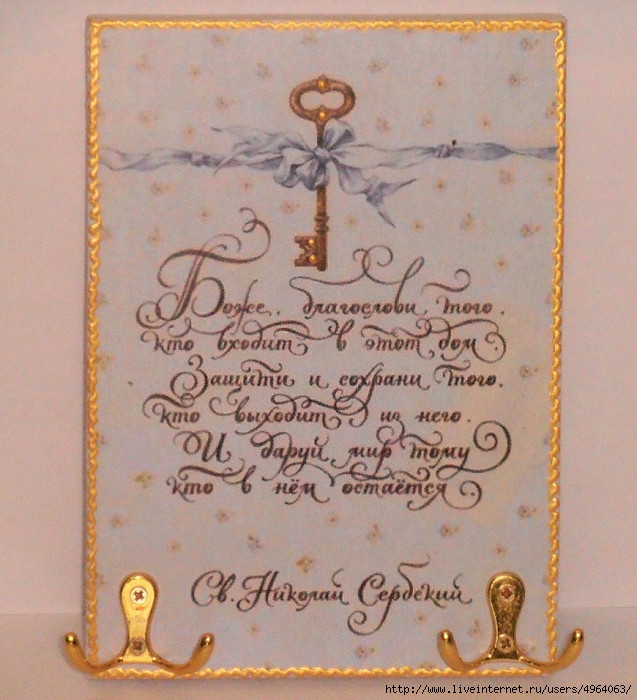 Боже, благослови того,
кто входит в этот дом.
Защити и сохрани того,
кто выходит из него.
И даруй мир тому
кто в нём остаётся.
Св. Николай Сербский
http://www.liveinternet.ru/users/4964063/